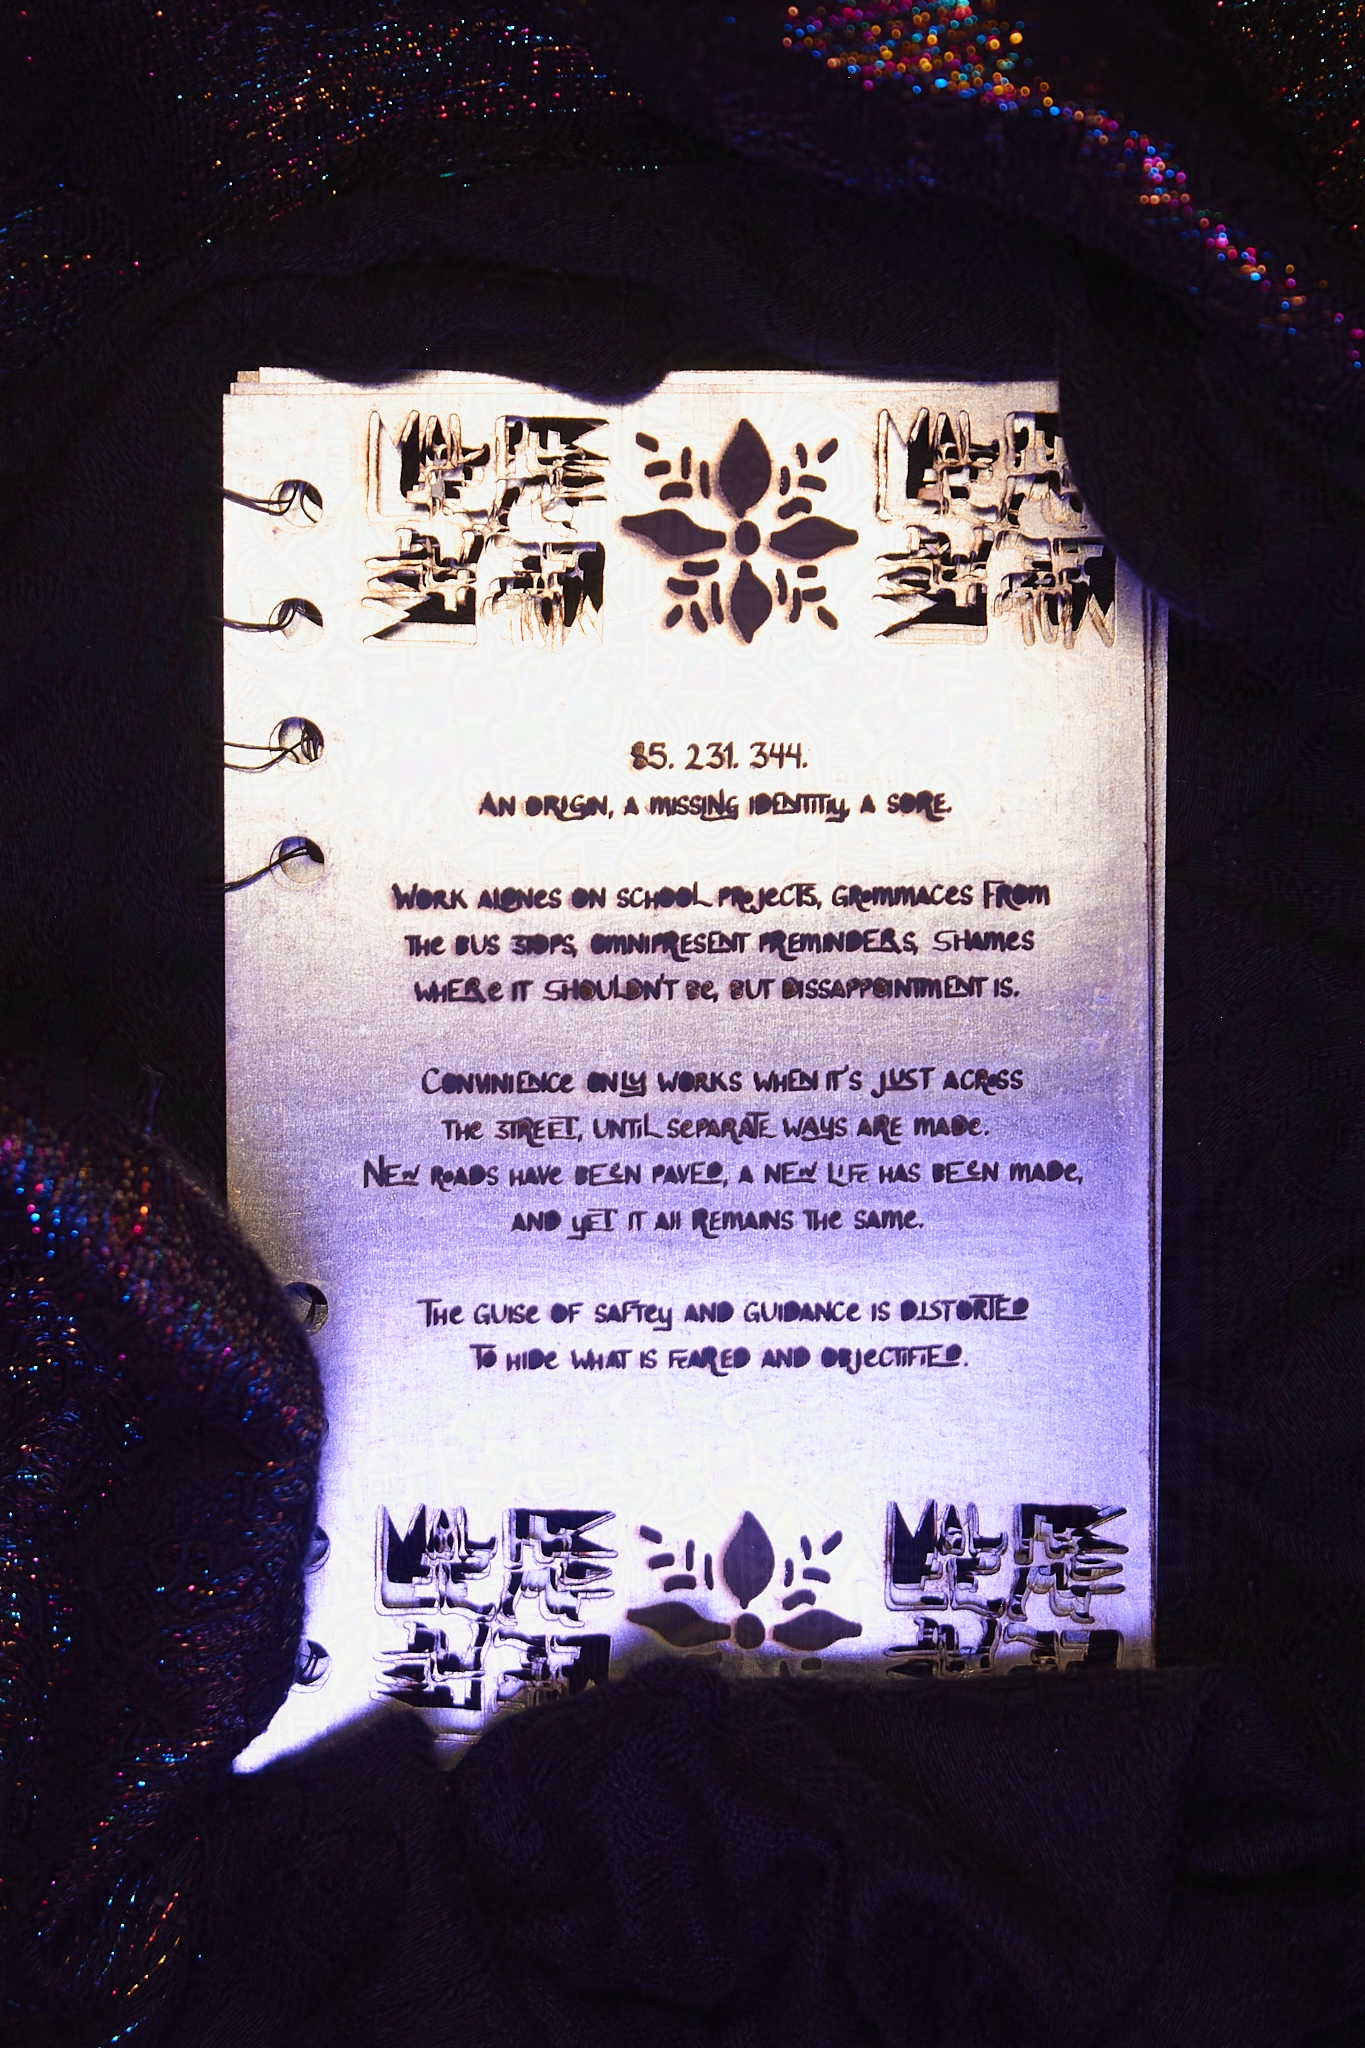 85. 231. 344.
An origin, a missing identitiy, a sore.
Work alones on school projects, grommaces from
the bus stops, omnipresent preminders, shames
where it shouldn't be, but dissappointment is.
Convinience only works when it's just across
the street, until separate ways are made.
New roads have been paved, a new life has been made,
and yet it all remains the same.
The guise of saftey and guidance is distorted
to hide what is feared and objectified.